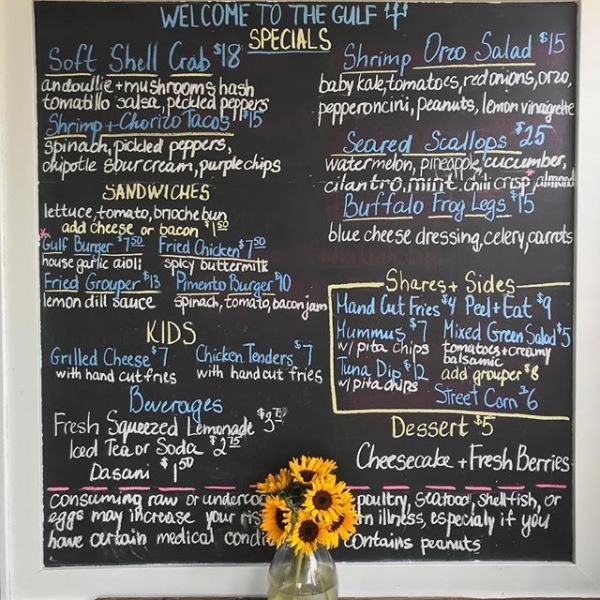 WELCOME TO THE GULF
SPECIALS
Soft Shell Crab $18
andoullie + mushrooms hash
tomatillo salsa, pickled peppers
Shrimp + Chorizo Tacos $15
spinach, pickled peppers,
chipotle sour cream, purple chips
Shrimp Orzo Salad $15
baby kale, tomatoes, red onions, orzo,
pepperoncini, peanuts, lemon vinaigrette
Seared Scallops $25
watermelon, pineapple, cucumber,
cilantro, mint, chili crisp, almond
Buffalo Frog Legs $15
blue cheese dressing, celery, carrots
SANDWICHES
lettuce, tomato, brioche bun
add cheese or bacon $1.50
*Gulf Burger $7.50 Fried Chicken $7.50
house garlic aioli spicy buttermilk
Fried Grouper $13 Pimento Burger $10
lemon dill sauce spinach, tomato, bacon jam
KIDS
Grilled Cheese $7 Chicken Tenders $7
with hand cut fries with hand cut fries
Beverages
Fresh Squeezed Lemonade
Iced Tea or Soda $2.75
Dasani $1.50
Shares + Sides
Hand Cut Fries $4 Peel + Eat $9
Hummus $7 Mixed Green Salad $5
w/ pita chips tomatoes + creamy
balsamic
Tuna Dip $12 add grouper $8
w/ pita chips
Street Corn $6
Dessert $5
Cheesecake + Fresh Berries
consuming raw or poultry, seafood, shellfish, or
eggs may increase your illness, especially if you
have certain medical contains peanuts